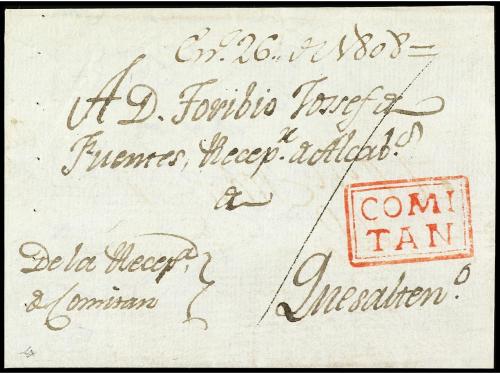 En.º 26,, de 1808=
A D. Toribio Jossef de
Fuentes, Recep.r de Alcab.s
a
COMI
TAN
De la Recep.a
de Comitan
Quesalten.o